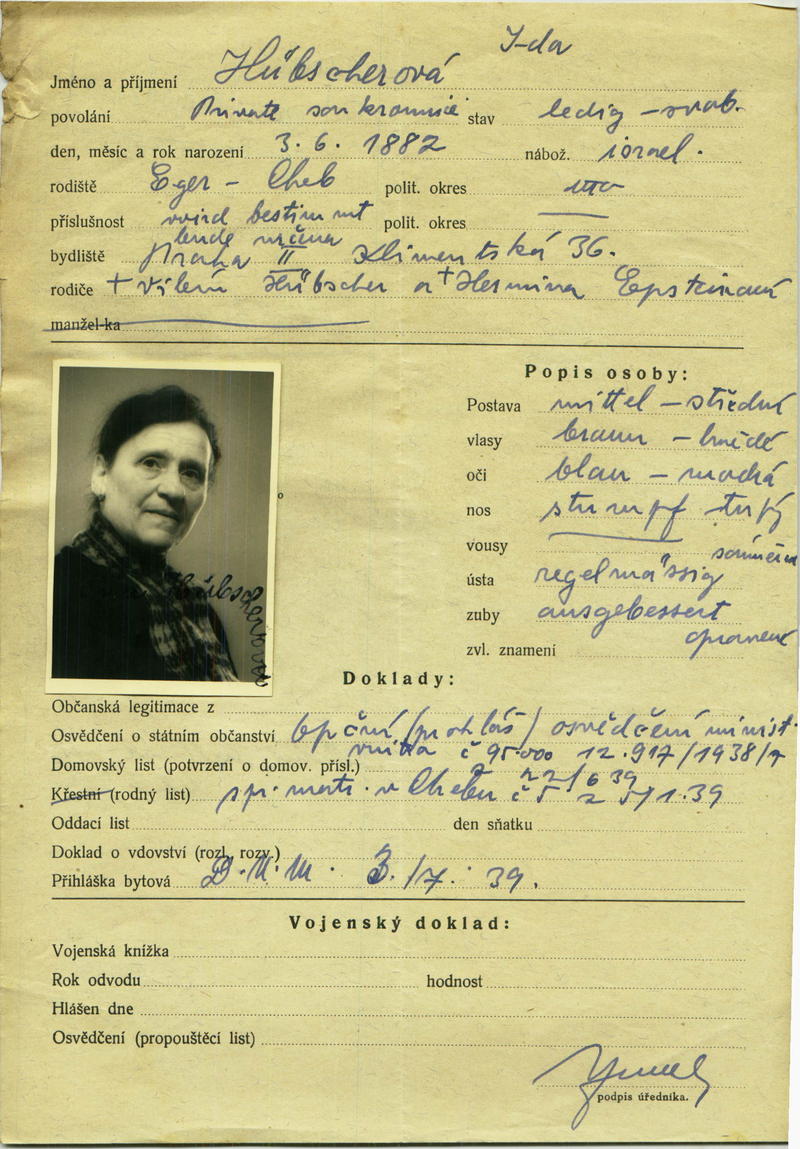 I-da
Jméno a příjmení Hübscherová
povolání Private soukromnice stav ledig - svob.
den, měsíc a rok narození 3. 6. 1882 nábož. israel.
rodiště Eger - Cheb polit. okres
příslušnost wird bestimmt polit. okres
bude určena
bydliště Praha II Klimentská 36.
rodiče + Vilém Hübscher a + Hermina Epsteinová
manžel-ka
Popis osoby:
Postava mittel - střední
vlasy braun - hnědé
oči blau - modrá
nos stumpf tupý
vousy
ústa regelmässig souměrná
zuby ausgebessert
opravené
zvl. znamení
Doklady:
Občanská legitimace z
Osvědčení o státním občanství opční (prohláš) osvědčení minist.
vnitra č 95.000 12.917/1938/7
Domovský list (potvrzení o domov. přísl.) 22/6 39
Křestní (rodný list) v Chebu č 5 z 5/1.39
Oddací list den sňatku
Doklad o vdovství (rozl. rozv.)
Přihláška bytová 3./7. 39.
Vojenský doklad:
Vojenská knížka
Rok odvodu hodnost
Hlášen dne
Osvědčení (propouštěcí list)
podpis úředníka.